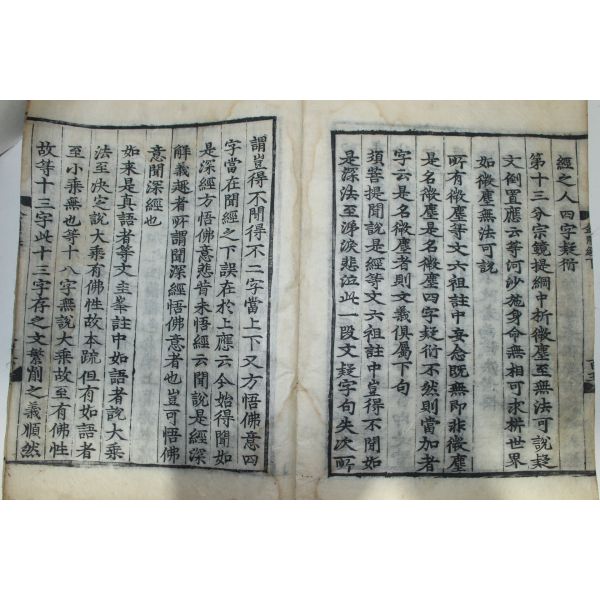 經之人四字疑衍
第十三分宗鏡提綱中析微塵至無法可說疑
文倒置應云等河沙施身命無相可求析世界
如微塵無法可說
所有微塵等文六祖註中妄念既無即非微塵
是名微塵是名微塵四字疑衍不然則當加者
字云是名微塵者則文義俱屬下句
須菩提聞說是經等文六祖註中豈得不聞如
是深法至涕淚悲泣此一段文疑字句失次所
謂豈得不聞得不二字當上下又方悟佛意四
字當在聞經之下誤在於上應云今始得聞如
是深經方悟佛意悲昔未悟經云聞說是經深
解義趣者所謂聞深經悟佛意者也豈可悟佛
意聞深經也
如來是真語者等文圭峯註中如語者說大乘
法至決定說大乘有佛性故本疏但有如語者
至小乘無也等十八字無說大乘故至有佛性
故等十三字此十三字存之文繁削之義順然